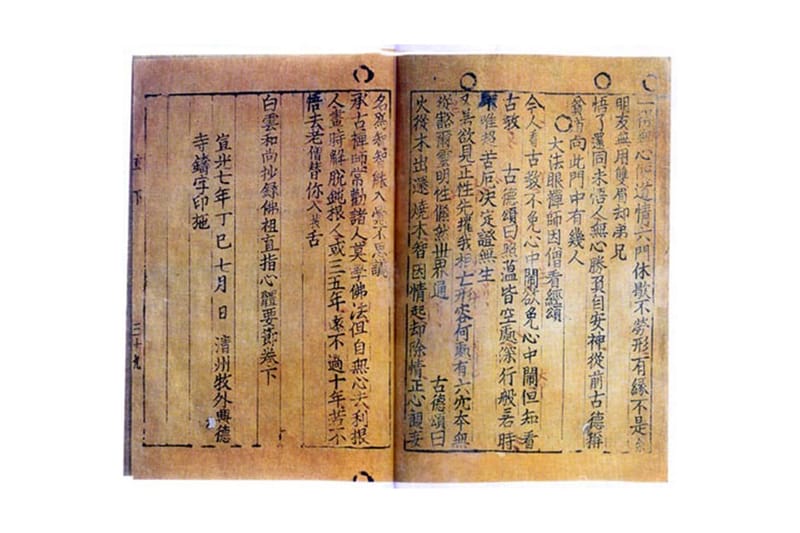 一得無心便道情六門休歇不勞形有緣不是
朋友無用雙眉却弟兄
悟了還同未悟人無心勝負自安神從前古德稱
貧道向此門中有幾人
大法眼禪師因僧看經頌
今人看古教不免心中鬧欲免心中鬧但知看
古教 古德頌曰照蘊皆空處深行般若時
唯超苦厄決定證無生
欲見正性先摧我相亡形容何處有六穴本無
蹤豁爾靈明性翛然世界通 古德頌曰
火從木出還燒木智因情起却除情正心觀妄
名爲智能入不思議
承古禪師常勸諸人莫學佛法但自無心去利根
人晝時解脫鈍根人或三五年遠不過十年若不
悟去老僧替你入拔舌
白雲和尚抄錄佛祖直指心體要節卷下
宣光七年丁巳七月 日 淸州牧外興德
寺鑄字印施
直下 三十九